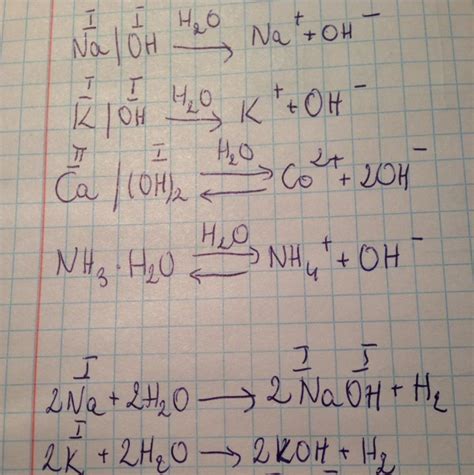 Na^I | OH^I —H₂O→ Na⁺ + OH⁻
K^I | OH^I —H₂O→ K⁺ + OH⁻
Ca^II | (OH)₂^I —H₂O⇄ Co²⁺ + 2OH⁻
NH₃ · H₂O —H₂O⇄ NH₄⁺ + OH⁻
2Na^I + 2H₂O → 2Na^I OH^I + H₂
2K^I + 2H₂O → 2KOH + H₂